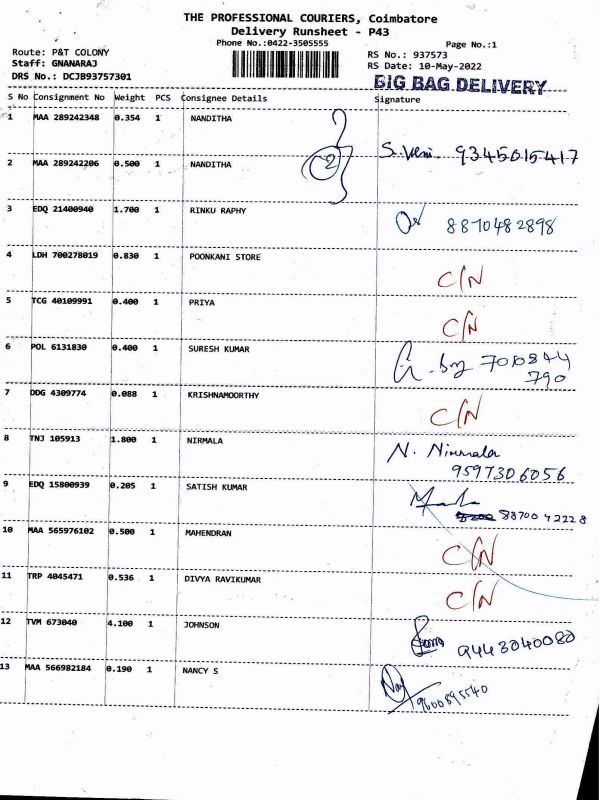 THE PROFESSIONAL COURIERS, Coimbatore
Delivery Runsheet - P43
Phone No.:0422-3505555
Page No.:1
Route: P&T COLONY
RS No.: 937573
Staff: GNANARAJ
RS Date: 10-May-2022
DRS No.: DCJB93757301
BIG BAG DELIVERY
S No Consignment No Weight PCS Consignee Details Signature
1 MAA 289242348 0.354 1 NANDITHA
2
S. Veni 9345015417
2 MAA 289242206 0.500 1 NANDITHA
3 EDQ 21400940 1.700 1 RINKU RAPHY 8870482898
4 LDH 700278019 0.830 1 POONKANI STORE C/N
5 TCG 40109991 0.400 1 PRIYA C/N
6 POL 6131830 0.400 1 SURESH KUMAR 7010844
790
7 DDG 4309774 0.088 1 KRISHNAMOORTHY C/N
8 TNJ 105913 1.800 1 NIRMALA N. Nirmala
9597306056
9 EDQ 15800939 0.205 1 SATISH KUMAR 88700 42228
10 MAA 565976102 0.500 1 MAHENDRAN C/N
11 TRP 4045471 0.536 1 DIVYA RAVIKUMAR C/N
12 TVM 673040 4.100 1 JOHNSON 9443040080
13 MAA 566982184 0.190 1 NANCY S 9600895540